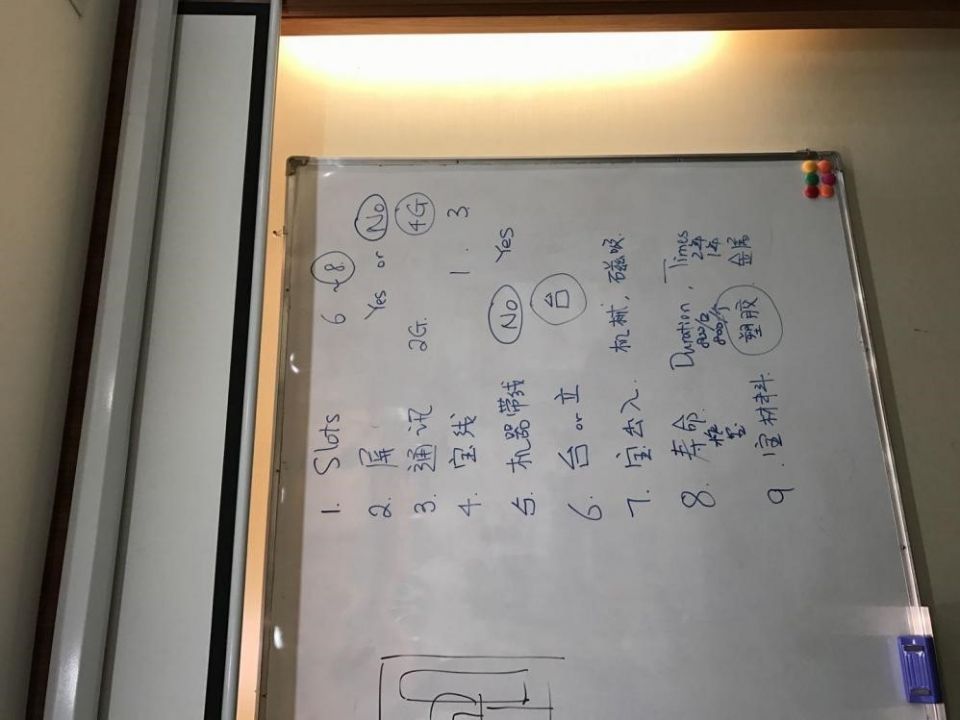 1. Slots 6 ~ 8
2. 屏 Yes or No
3. 通讯 2G. 4G
4. 宝线 1. 3
5. 机器带线 No Yes
6. 台 or 立 台
7. 宝出入. 机械, 磁吸.
8. 寿命. Duration, Times
柜 800/台 2年
宝 800/个 1年
9. 宝材料. 塑胶 金属